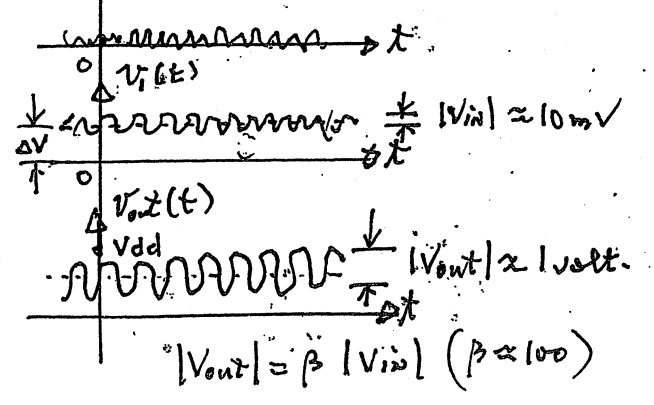 t
0
V₁(t)
ΔV
|Vin| ≈ 10mV
t
0
Vout(t)
Vdd
|Vout| ≈ 1 volt.
t
|Vout| = β |Vin| (β ≈ 100)